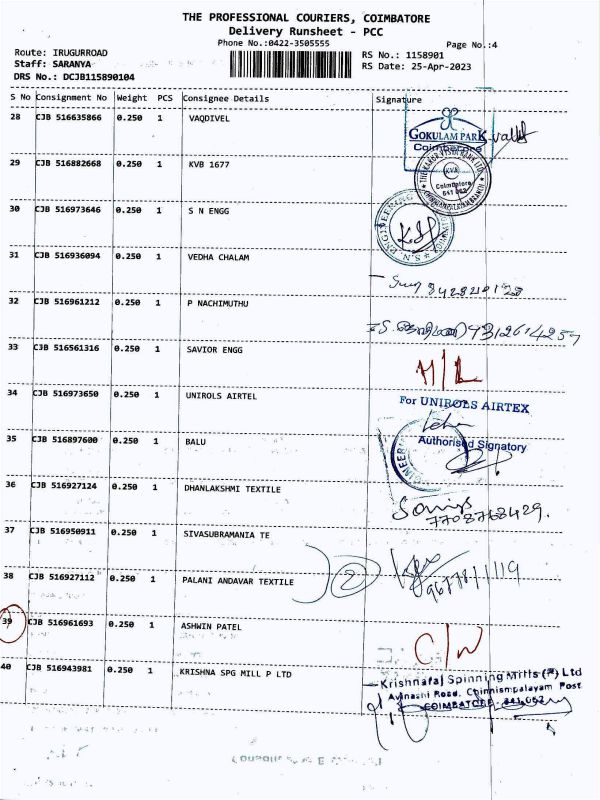 THE PROFESSIONAL COURIERS, COIMBATORE
Delivery Runsheet - PCC
Phone No.:0422-3505555
Page No.:4
Route: IRUGURROAD
RS No.: 1158901
Staff: SARANYA
RS Date: 25-Apr-2023
DRS No.: DCJB115890104
S No Consignment No Weight PCS Consignee Details Signature
28 CJB 516635866 0.250 1 VAQDIVEL
GOKULAM PARK
Coimbatore
29 CJB 516882668 0.250 1 KVB 1677
KVB
Coimbatore
641 062
30 CJB 516973646 0.250 1 S N ENGG
31 CJB 516936094 0.250 1 VEDHA CHALAM
32 CJB 516961212 0.250 1 P NACHIMUTHU
33 CJB 516561316 0.250 1 SAVIOR ENGG
34 CJB 516973650 0.250 1 UNIROLS AIRTEL
For UNIROLS AIRTEX
35 CJB 516897600 0.250 1 BALU
Authorised Signatory
36 CJB 516927124 0.250 1 DHANLAKSHMI TEXTILE
7708768429.
37 CJB 516950911 0.250 1 SIVASUBRAMANIA TE
38 CJB 516927112 0.250 1 PALANI ANDAVAR TEXTILE
2
39 CJB 516961693 0.250 1 ASHWIN PATEL
C/W
40 CJB 516943981 0.250 1 KRISHNA SPG MILL P LTD
Krishnaraj Spinning Mills (P) Ltd
Avinashi Road, Chinniampalayam Post
COIMBATORE - 641 062